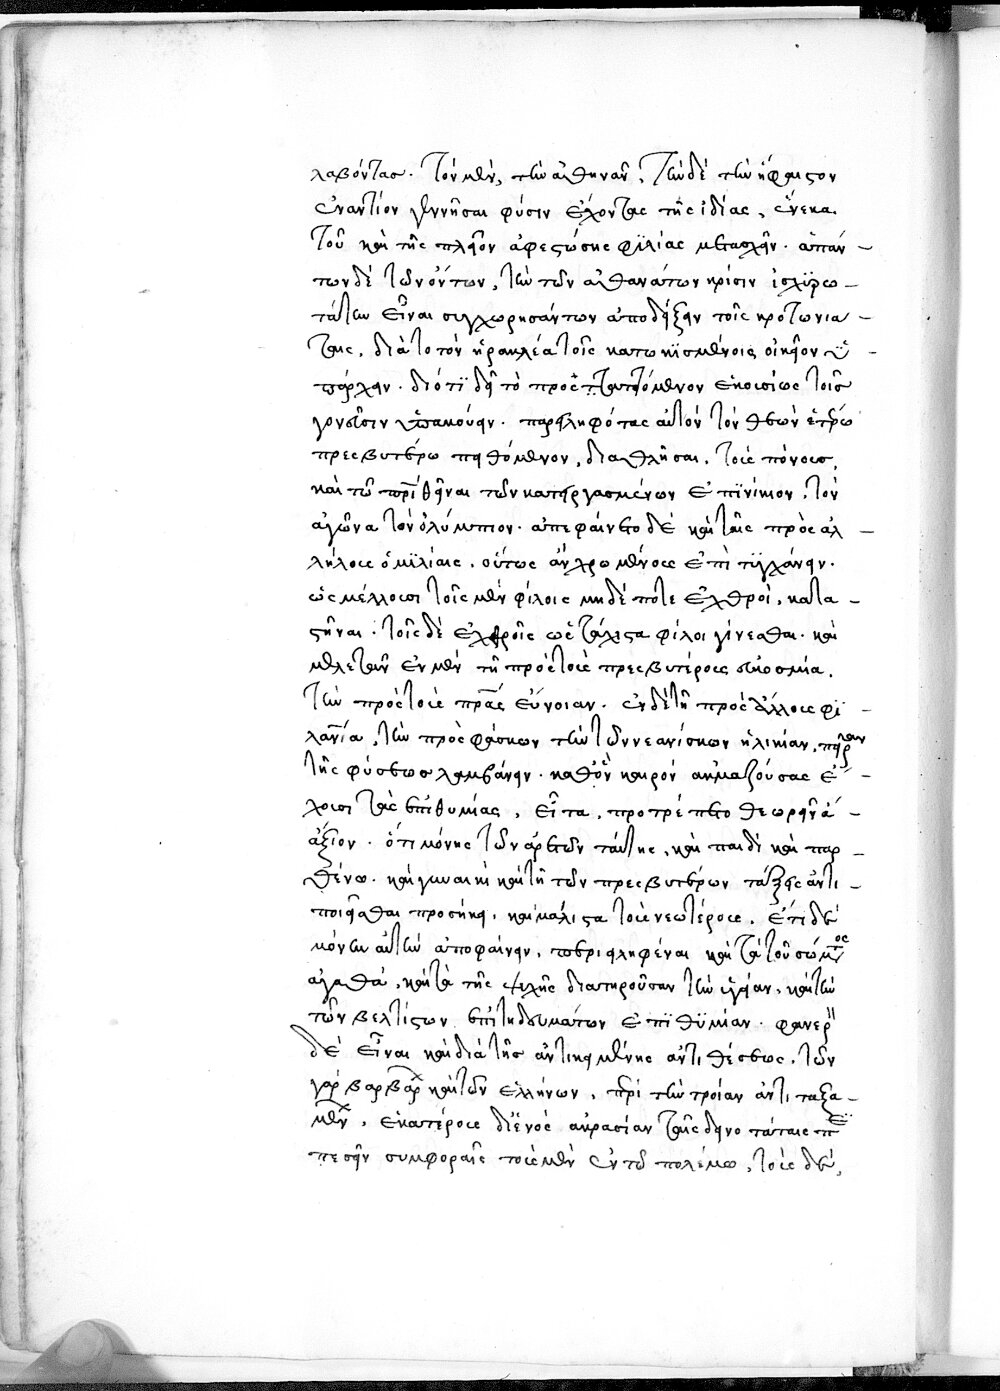 λαβόντας. τὸν μὲν, τὴν ἀθηνᾶν, τὴν δὲ τὴν ἥφαιστον
ἐναντίον γεννῆσαι φύσιν ἔχοντας τῆς ἰδίας, ἕνεκα
τοῦ καὶ τῆς πλεῖον ἀφεστώσης φιλίας μετασχεῖν. ἁπάν –
των δὲ τῶν ὄντων, τὴν τῶν ἀθανάτων κρίσιν ἰσχυρω –
τάτην εἶναι συγχωρησάντων ἀποδείξειν τοῖς κροτωνιά –
ταις, διὰ τὸ τὸν ἡρακλέα τοῖς κατωκισμένοις οἰκεῖον ὑ –
πάρχειν. διότι δεῖ τὸ προσταττόμενον ἑκουσίως τοῖς
γονεῦσιν ὑπακούειν. παρειληφότας αὐτὸν τὸν θεὸν ἑτέρω
πρεσβυτέρω πειθόμενον, διαθλῆσαι, τοὺς πόνους,
καὶ τῶ πρὶ θεῖναι τῶν κατειργασμένων ἐπινίκιον, τὸν
ἀγῶνα τὸν ὀλύμπιον. ἀπεφαίνετο δὲ καὶ ταῖς πρὸς ἀλ –
λήλους ὁμιλίαις, οὕτως ἂν χρωμένους ἐπιτυγχάνειν.
ὡς μέλλουσι τοῖς μὲν φίλοις μηδέποτε ἐχθροὶ, κατα –
στῆναι. τοῖς δὲ ἐχθροῖς ὡς τάχιστα φίλοι γίνεσθαι. καὶ
μελετᾶν ἐν μὲν τῆ πρὸς τοὺς πρεσβυτέρους εὐκοσμία,
τὴν πρὸς τοὺς πρας εὔνοιαν. ἐν δὲ τῆ πρὸς ἄλλους φι –
λανία, τὴν πρὸς φάσκων τὴν τῶν νεανίσκων ἡλικίαν, πεῖραν
τῆς φύσεως λαμβάνειν. καθ' ὃν καιρὸν ἀκμαζούσας ἔ –
χουσι τὰς ἐπιθυμίας, εἶτα, προτρέπετο θεωρεῖν ἄ –
ἄξιον. ὅτι μόνης τῶν ἀρετῶν ταύτης, καὶ παιδὶ καὶ παρ –
θένω. καὶ γυναικὶ καὶ τῆ τῶν πρεσβυτέρων τάξει ἀντι –
ποιεῖσθαι προσήκει, καὶ μάλιστα τοῖς νεωτέροις. ἔτι δὲ
μόνην αὐτὴν ἀποφαίνειν, περιειληφέναι καὶ τὰ τοῦ σώματος
ἀγαθὰ, καὶ τὰ τῆς ψυχῆς διατηροῦσαν τὴν ὑγείαν, καὶ τὴν
τῶν βελτίστων ἐπιτηδευμάτων ἐπιθυμίαν. φανερὸν
δὲ εἶναι καὶ διὰ τῆς ἀντικειμένης ἀντιθέσεως, τῶν
γὰρ βαρβάρων καὶ τῶν ἑλλήνων, περὶ τὴν τροίαν ἀντιταξα –
μένων, ἑκατέρους δι' ἑνὸς ἀκρασίαν ταῖς δεινοτάταις περι
πεσεῖν συμφοραῖς τοὺς μὲν ἐν τῶ πολέμω, τοὺς δὲ,